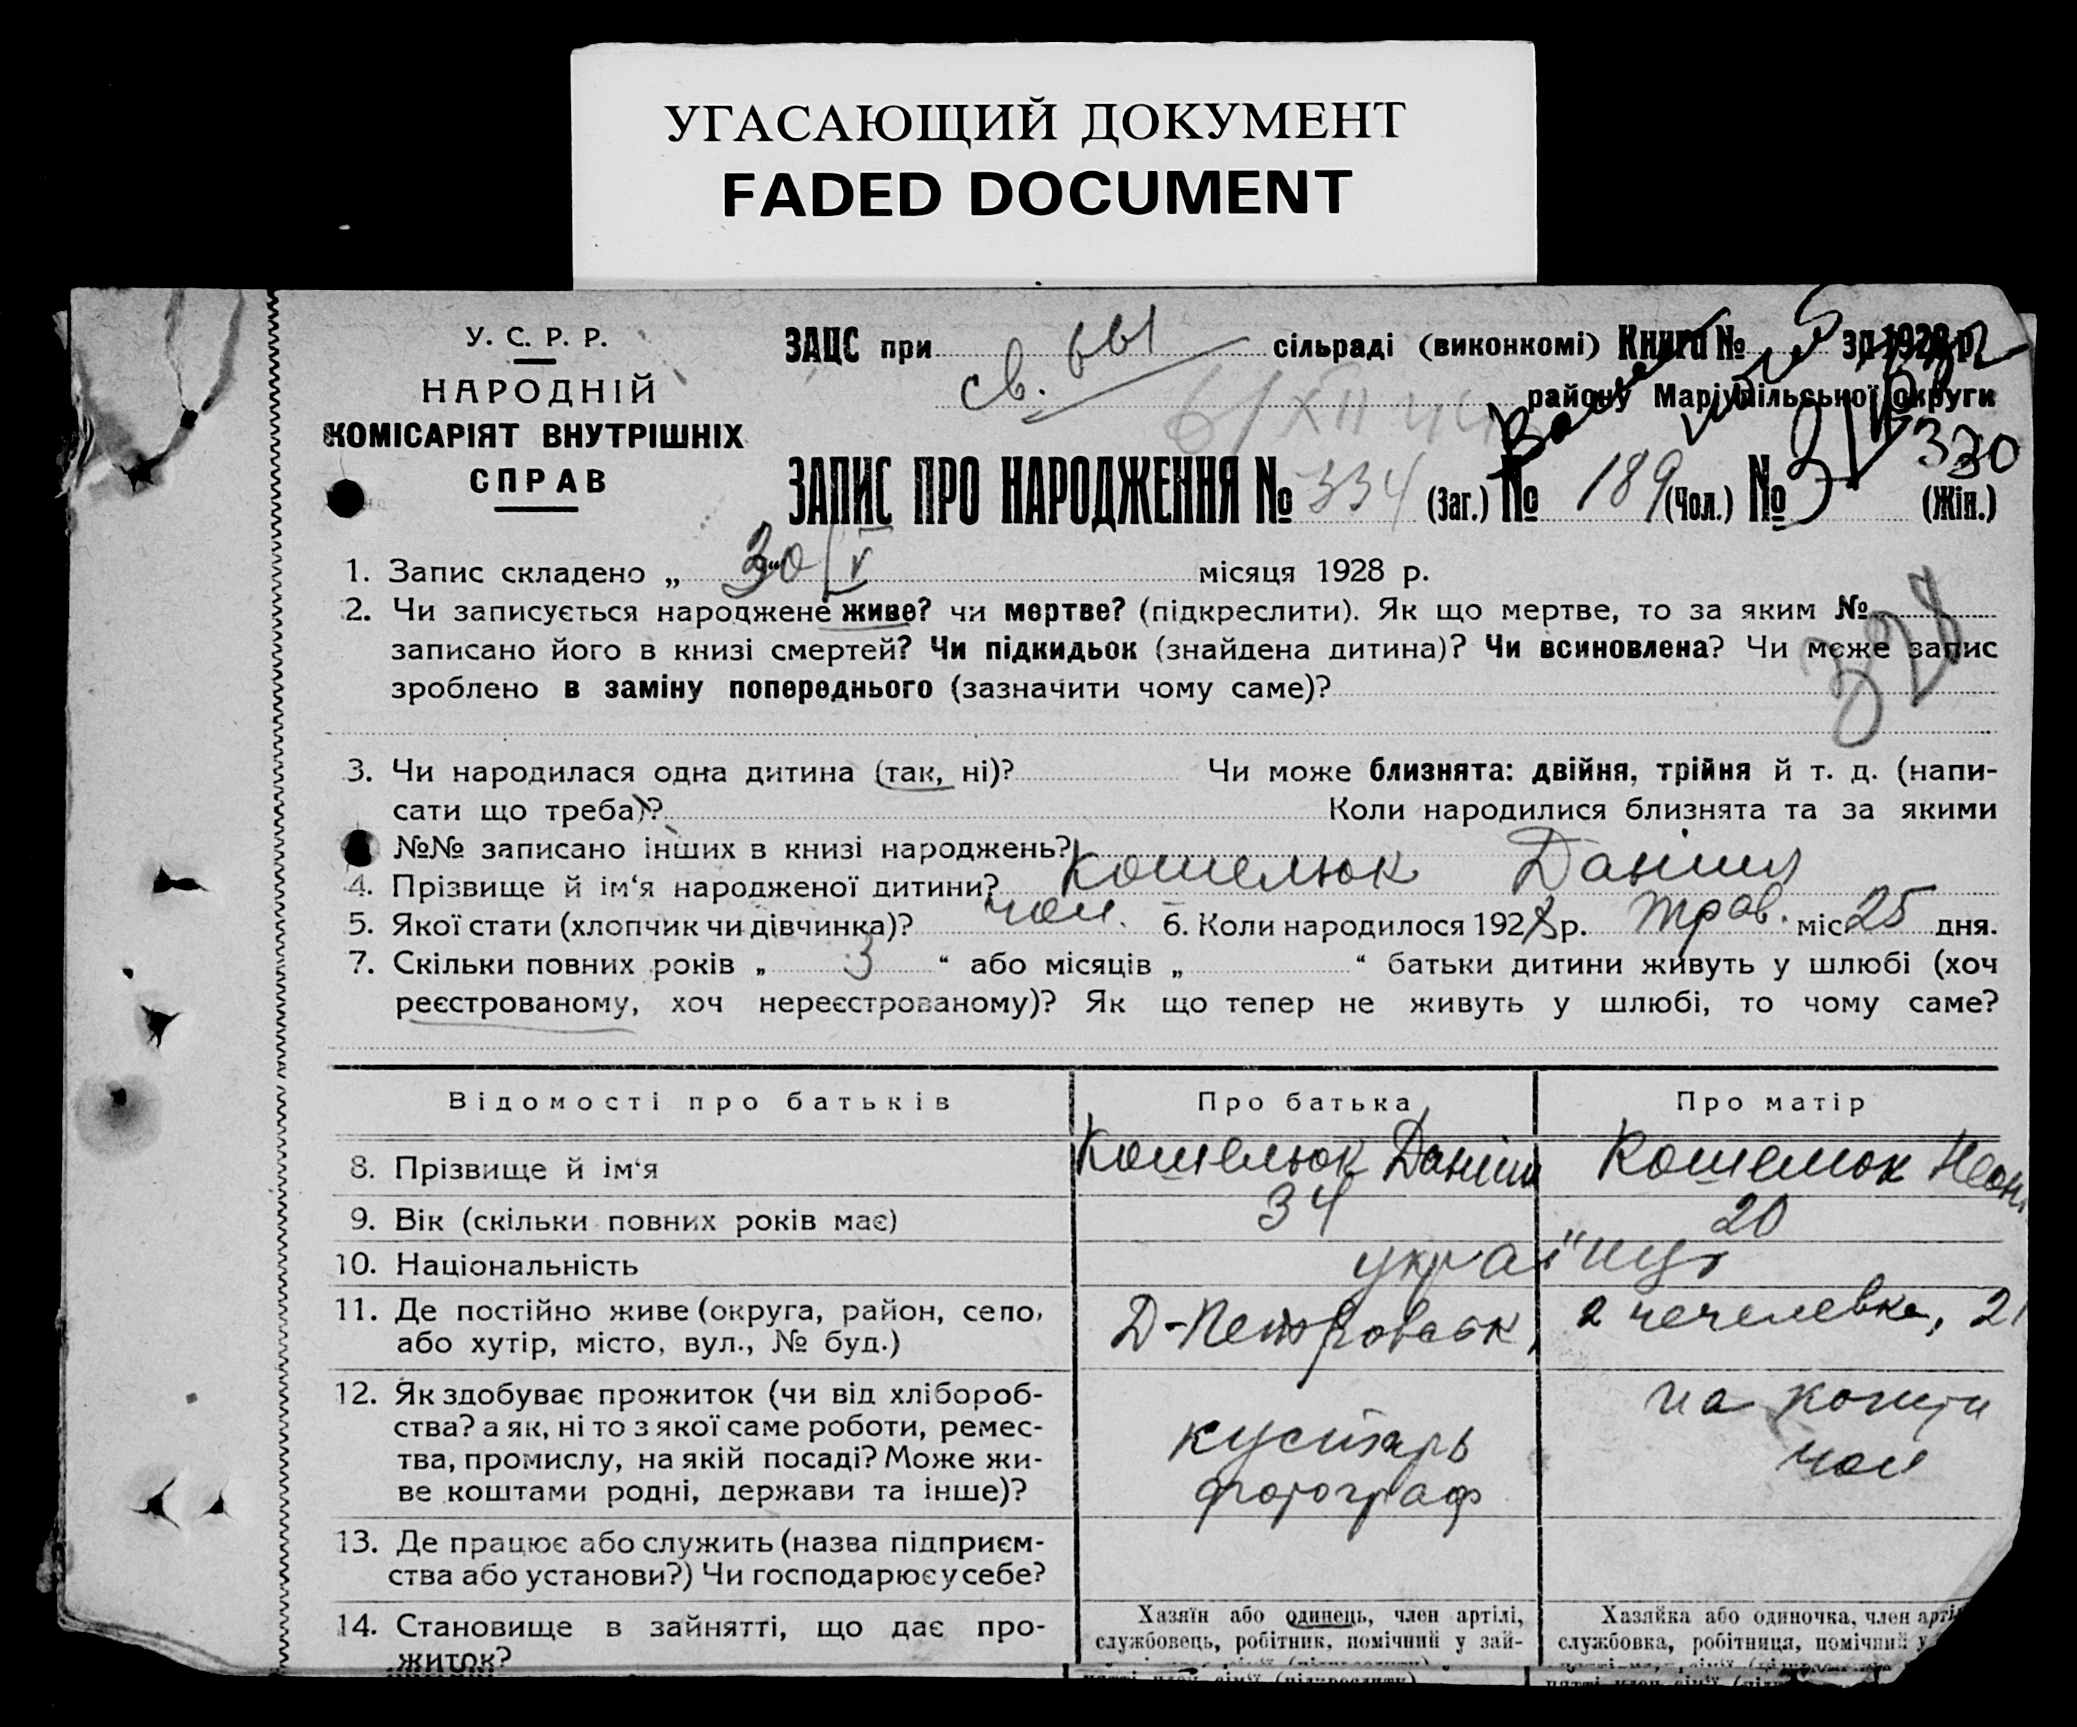 УГАСАЮЩИЙ ДОКУМЕНТ
FADED DOCUMENT
У. С. Р. Р.
НАРОДНІЙ
КОМІСАРІЯТ ВНУТРІШНІХ
СПРАВ
ЗАЦС при св. сільраді (виконкомі) Книга № за 1928 р.
району Маріюпільської округи
ЗАПИС ПРО НАРОДЖЕННЯ № 334 (Заг.) № 189 (Чол.) № (Жін.)
330
1. Запис складено „ 30/V місяця 1928 р.
2. Чи записується народжене живе? чи мертве? (підкреслити). Як що мертве, то за яким №
записано його в книзі смертей? Чи підкидьок (знайдена дитина)? Чи всиновлена? Чи може запис
зроблено в заміну попереднього (зазначити чому саме)?
3. Чи народилася одна дитина (так, ні)? Чи може близнята: двійня, трійня й т. д. (напи-
сати що треба)? Коли народилися близнята та за якими
№№ записано інших в книзі народжень?
4. Прізвище й ім‘я народженої дитини? Кошелюк Даніил
5. Якої стати (хлопчик чи дівчинка)? чол. 6. Коли народилося 1928 р. трав. міс 25 дня.
7. Скільки повних років „ 3 “ або місяців „ “ батьки дитини живуть у шлюбі (хоч
реєстрованому, хоч нереєстрованому)? Як що тепер не живуть у шлюбі, то чому саме?
Відомості про батьків Про батька Про матір
8. Прізвище й ім‘я Кошелюк Даніил Кошелюк
9. Вік (скільки повних років має) 34 20
10. Національність українці
11. Де постійно живе (округа, район, село,
або хутір, місто, вул., № буд.) Д-Петровськ, 2 чечелевка, 21
12. Як здобуває прожиток (чи від хлібороб-
ства? а як, ні то з якої саме роботи, ремес-
тва, промислу, на якій посаді? Може жи-
ве коштами родні, держави та інше)? кустарь
фотограф
на кошти
чол
13. Де працює або служить (назва підприєм-
ства або установи?) Чи господарює у себе?
14. Становище в зайнятті, що дає про-
житок?
Хазяїн або одинець, член артілі,
службовець, робітник, помічний у зай-
Хазяйка або одиночка, член арті
службовка, робітниця, помічний у